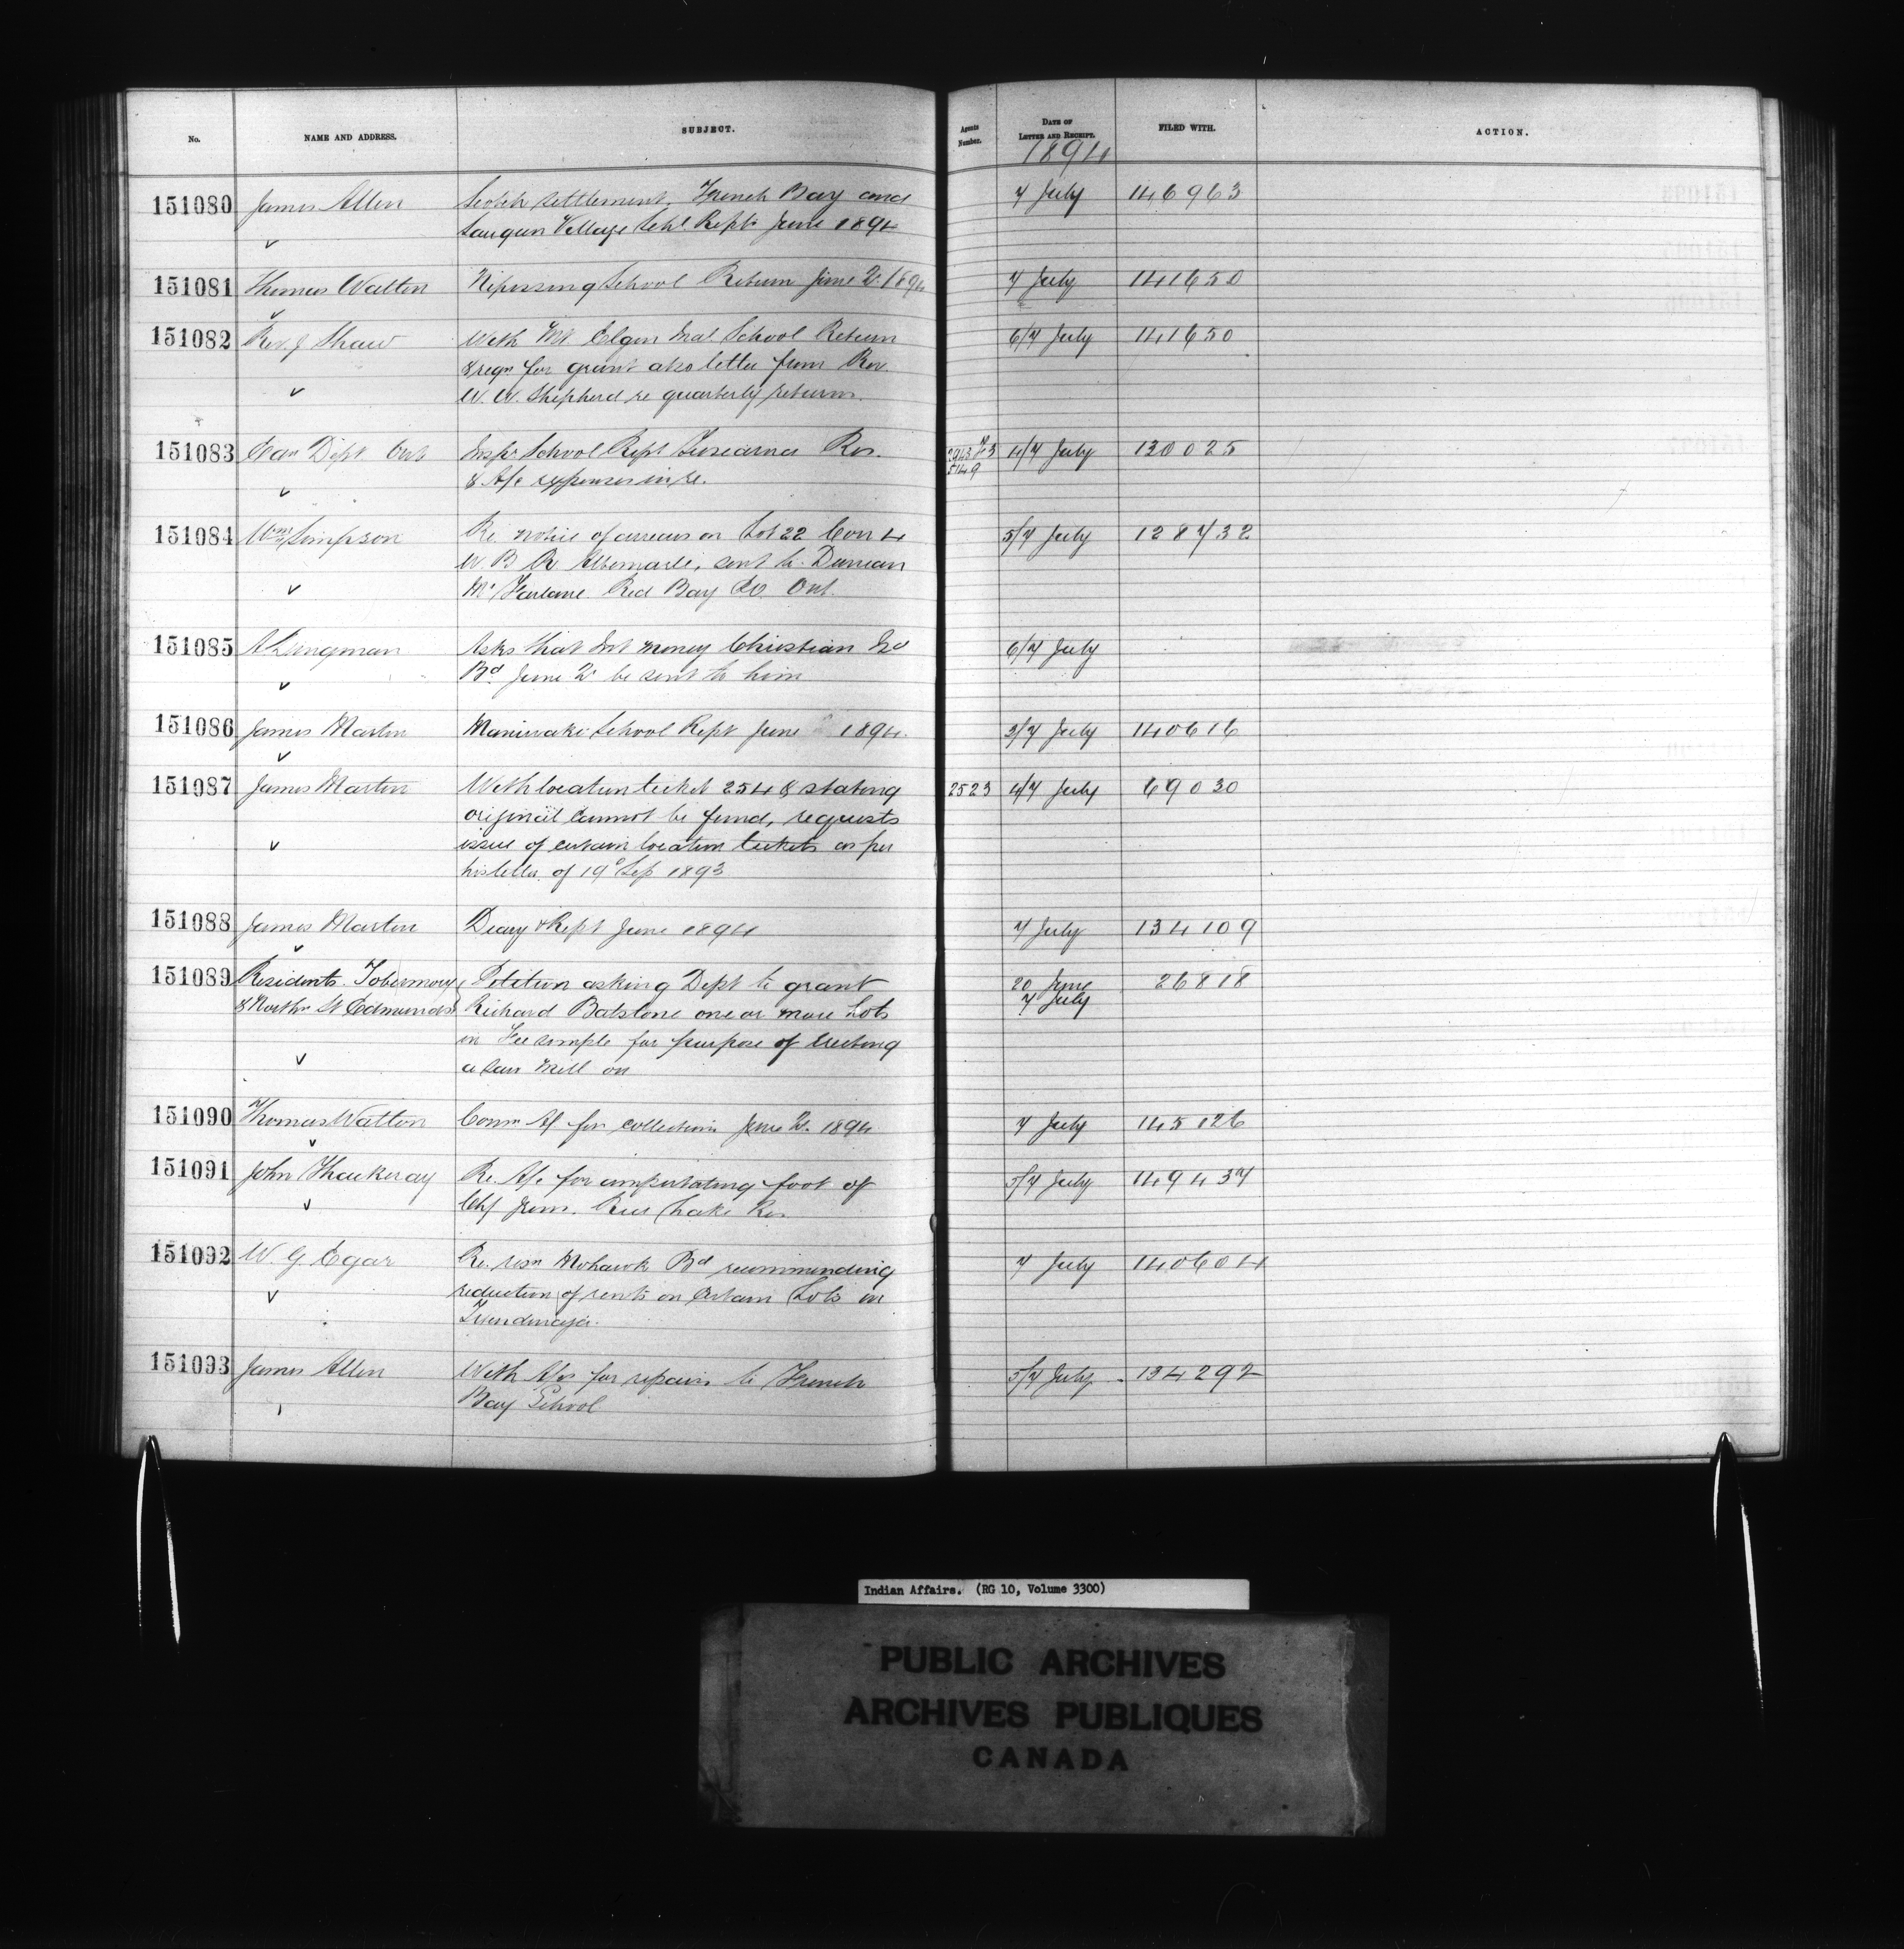 No. NAME AND ADDRESS. SUBJECT. Agents Number. DATE OF LETTER AND RECEIPT. FILED WITH. ACTION.
1894
151080 James Allen Scotch Settlement, French Bay and 7 July 146963
Saugeen Village Schl Repts June 1894
151081 Thomas Walton Nipissing School Return June Qr 1894 7 July 141650
151082 Rev. J Shaw With Mt Elgin Inst School Return 6/7 July 141650
& reqn for grant also letter from Rev
W. W. Shepherd re quarterly returns.
151083 Edn Dept Ont Inspr School Rept Tuscarora Res. 4/7 July 130025
& A/c expenses in re. 5149
151084 Wm Simpson Re notice of arrears on Lot 22 Con 4 5/7 July 128732
W. B R Albemarle, sent to Duncan
Mc Farlane Red Bay P.O. Ont.
151085 A Dingman Asks that Int money Christian Isd 6/7 July
Bd June Qr be sent to him
151086 James Martin Maniwaki School Rept June 1894. 3/7 July 140616
151087 James Martin With location ticket 254 & stating 2523 4/7 July 69030
original cannot be found, requests
issue of certain location tickets as per
his letter of 19th Sep 1893
151088 James Martin Diary & Rept June 1894 7 July 134109
151089 Residents Tobermory Petition asking Dept to grant 20 June 26818
& North St Edmunds Richard Batstone one or more Lots 7 July
in Fee simple for purpose of erecting
a saw mill on
151090 Thomas Walton Comn A/c for collections June Qr. 1894 7 July 145126
151091 John Thackeray Re A/c for amputating foot of 5/7 July 149437
Chf Jas. Rice Lake Res
151092 W. G Egar Re resn Mohawk Bd recommending 7 July 140604
reduction of rents on certain Lots in
Tyendinaga.
151093 James Allen With A/cs for repairs to French 5/7 July 134292
Bay School
Indian Affairs. (RG 10, Volume 3300)
PUBLIC ARCHIVES
ARCHIVES PUBLIQUES
CANADA